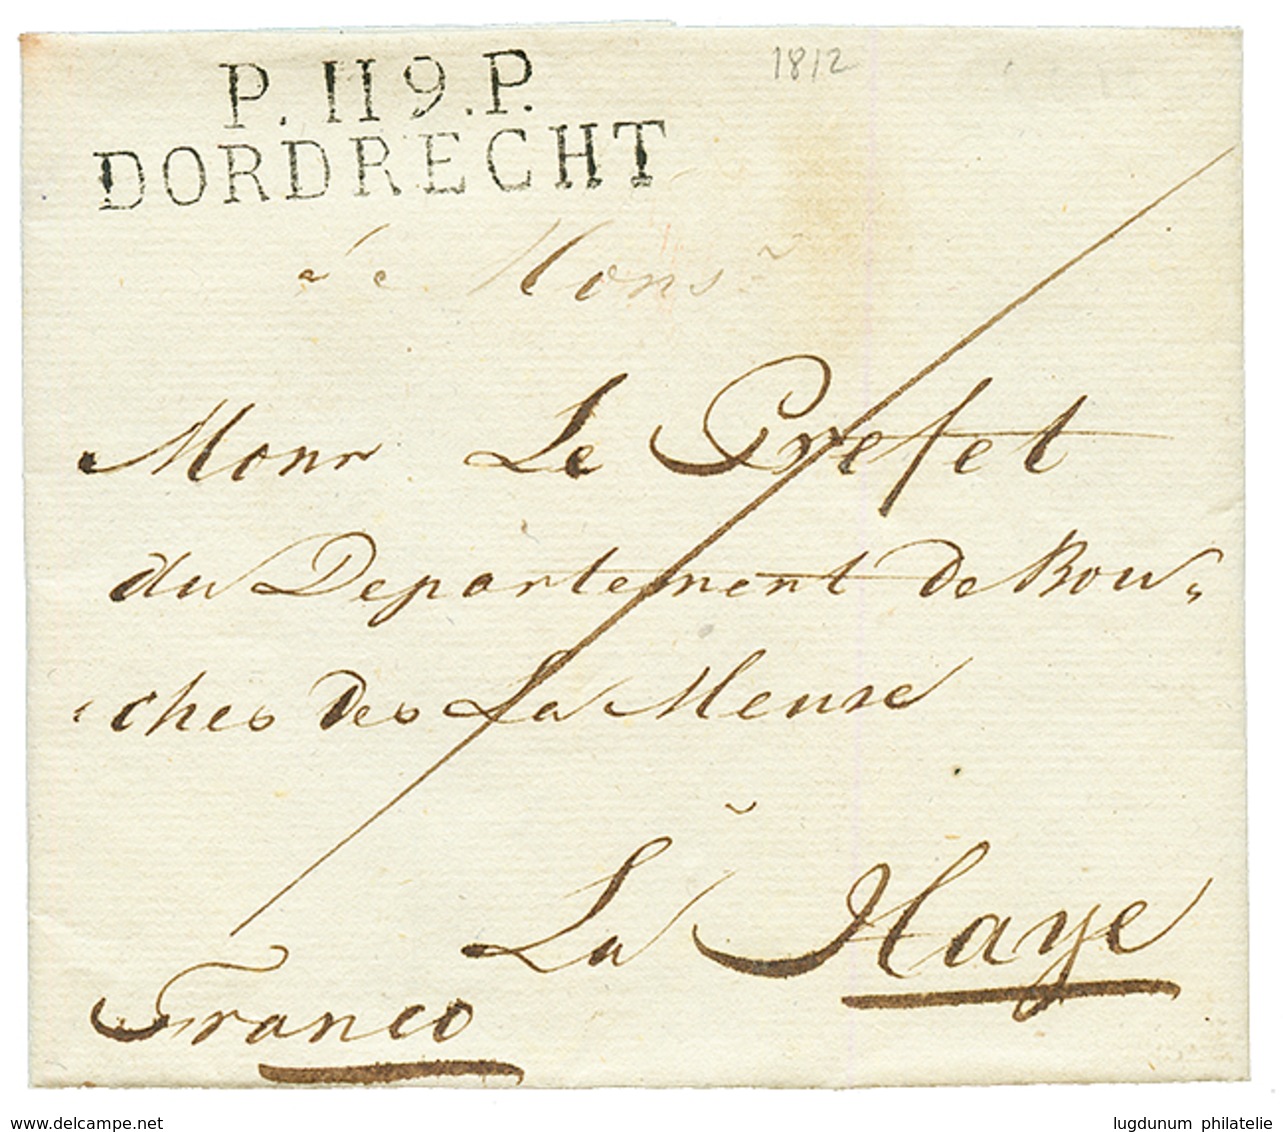 P. 119. P.
1812
DORDRECHT
Mons.r
Monr Le Prefet
du Departement de Bou„
„ches des La Meuse
La Haye
Franco
www.delcampe.net
lugdunum philatelie